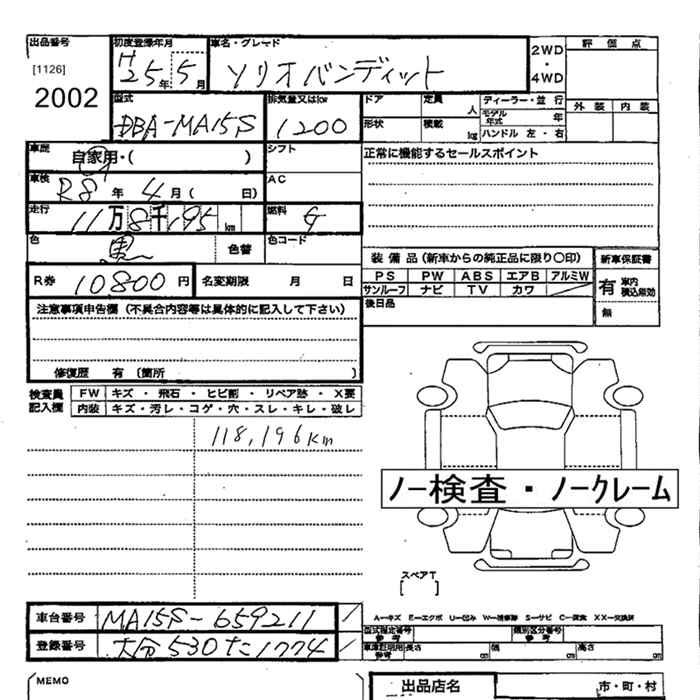 出品番号 初度登録年月 車名・グレード 2WD ・ 4WD 評価点
[1126] 2002 H25年5月 ソリオバンディット
外装 内装
型式 排気量又はkw ドア 定員 人 ディーラー・並行
DBA-MA15S 1200 形状 積載 kg モデル年式 年
ハンドル 左・右
車歴 自家用・( ) シフト 正常に機能するセールスポイント
車検 R8年4月( 日) AC
走行 11万8千195km 燃料 G
色 黒 色替 色コード
装備品(新車からの純正品に限り○印) 新車保証書
R券 10800円 名変期限 月 日 PS PW ABS エアB アルミW 有 車内 積込無効
サンルーフ ナビ TV カワ
注意事項申告欄(不具合内容等は具体的に記入して下さい) 後日品 無
修復歴 有〔箇所 〕
検査員記入欄 FW キズ・飛石・ヒビ割・リペア跡・X要
内装 キズ・汚レ・コゲ・穴・スレ・キレ・破レ
118,196Km
ノー検査・ノークレーム
スペアT
[ ]
車台番号 MA15S-659211
A-キズ E-エクボ U-凹み W-補修跡 S-サビ C-腐食 XX-交換済
型式指定番号 参考 類別区分番号 参考
登録番号 大分530た1774 車庫証明用 参考 長さ cm 幅 cm 高さ cm
MEMO 出品店名 市・町・村